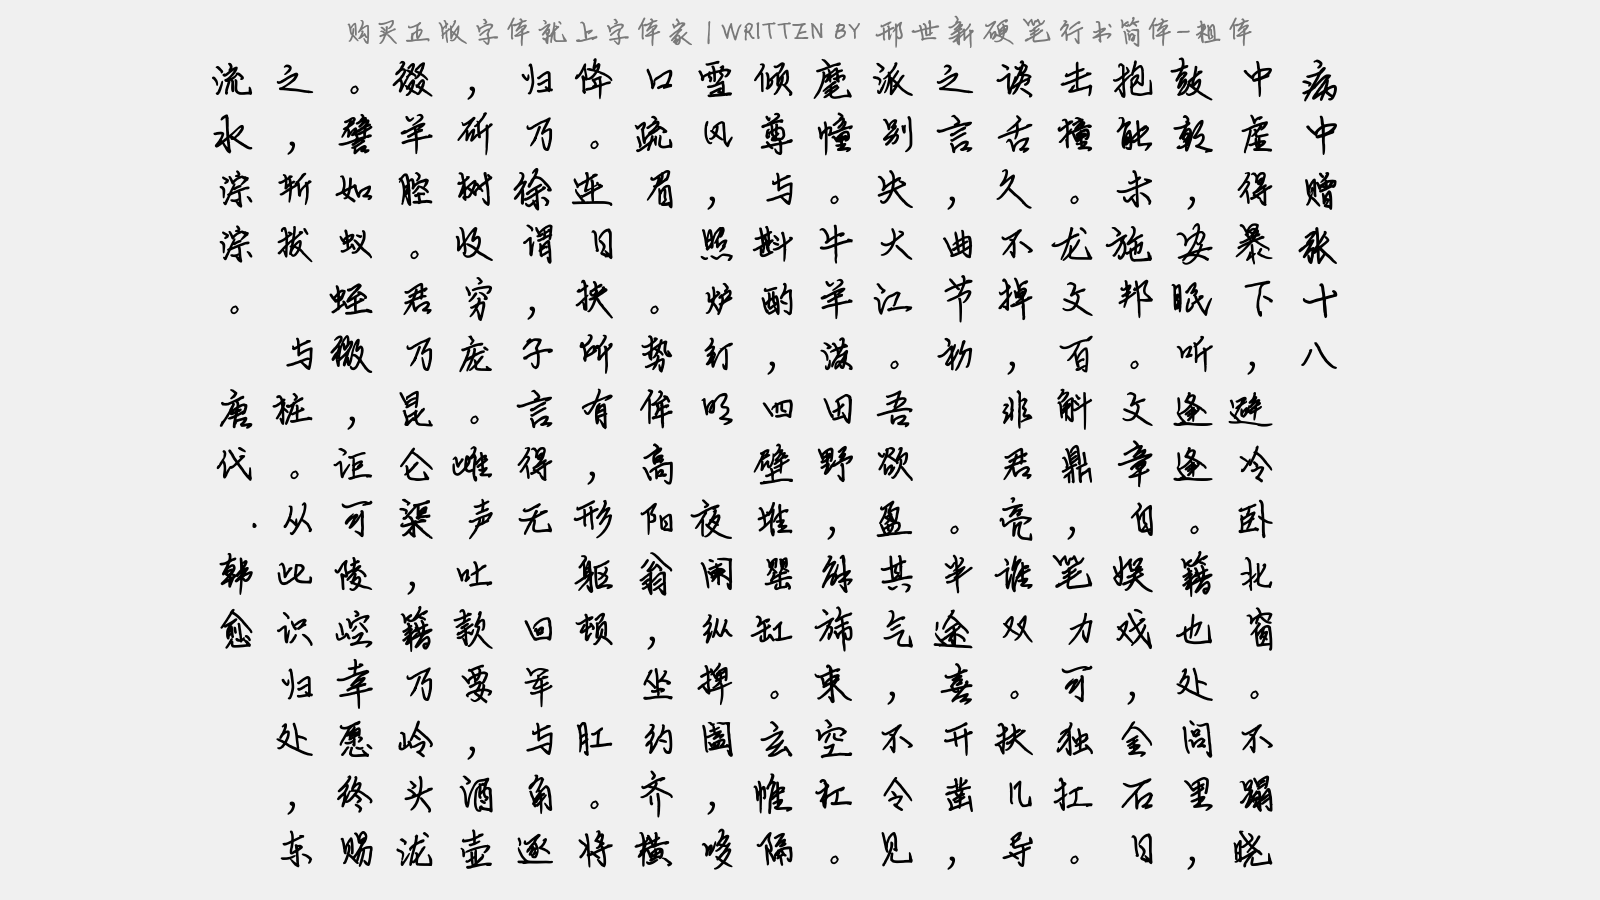 购买正版字体就上字体家 | WRITTEN BY 邢世新硬笔行书简体-粗体
病中赠张十八
中虚得暴下，避冷卧北窗。不蹋晓
鼓朝，安眠听逢逢。籍也处闾里，
抱能未施邦。文章自娱戏，金石日
击撞。龙文百斛鼎，笔力可独扛。
谈舌久不掉，非君亮谁双。扶几导
之言，曲节初 。半途喜开凿，
派别失大江。吾欲盈其气，不令见
麾幢。牛羊满田野，解旆束空杠。
倾尊与斟酌，四壁堆罂缸。玄帷隔
雪风，照炉钉明 夜阑纵捭阖，哆
口疏眉 。势侔高阳翁，坐约齐横
降。连日挟所有，形躯顿 肛。将
归乃徐谓，子言得无 回军与角逐
，斫树收穷庞。雌声吐款要，酒壶
缀羊腔。君乃昆仑渠，籍乃岭头泷
。譬如蚁蛭微，讵可陵崆幸愿终赐
之，斩拔 与桩。从此识归处，东
流水淙淙。 唐代.韩愈